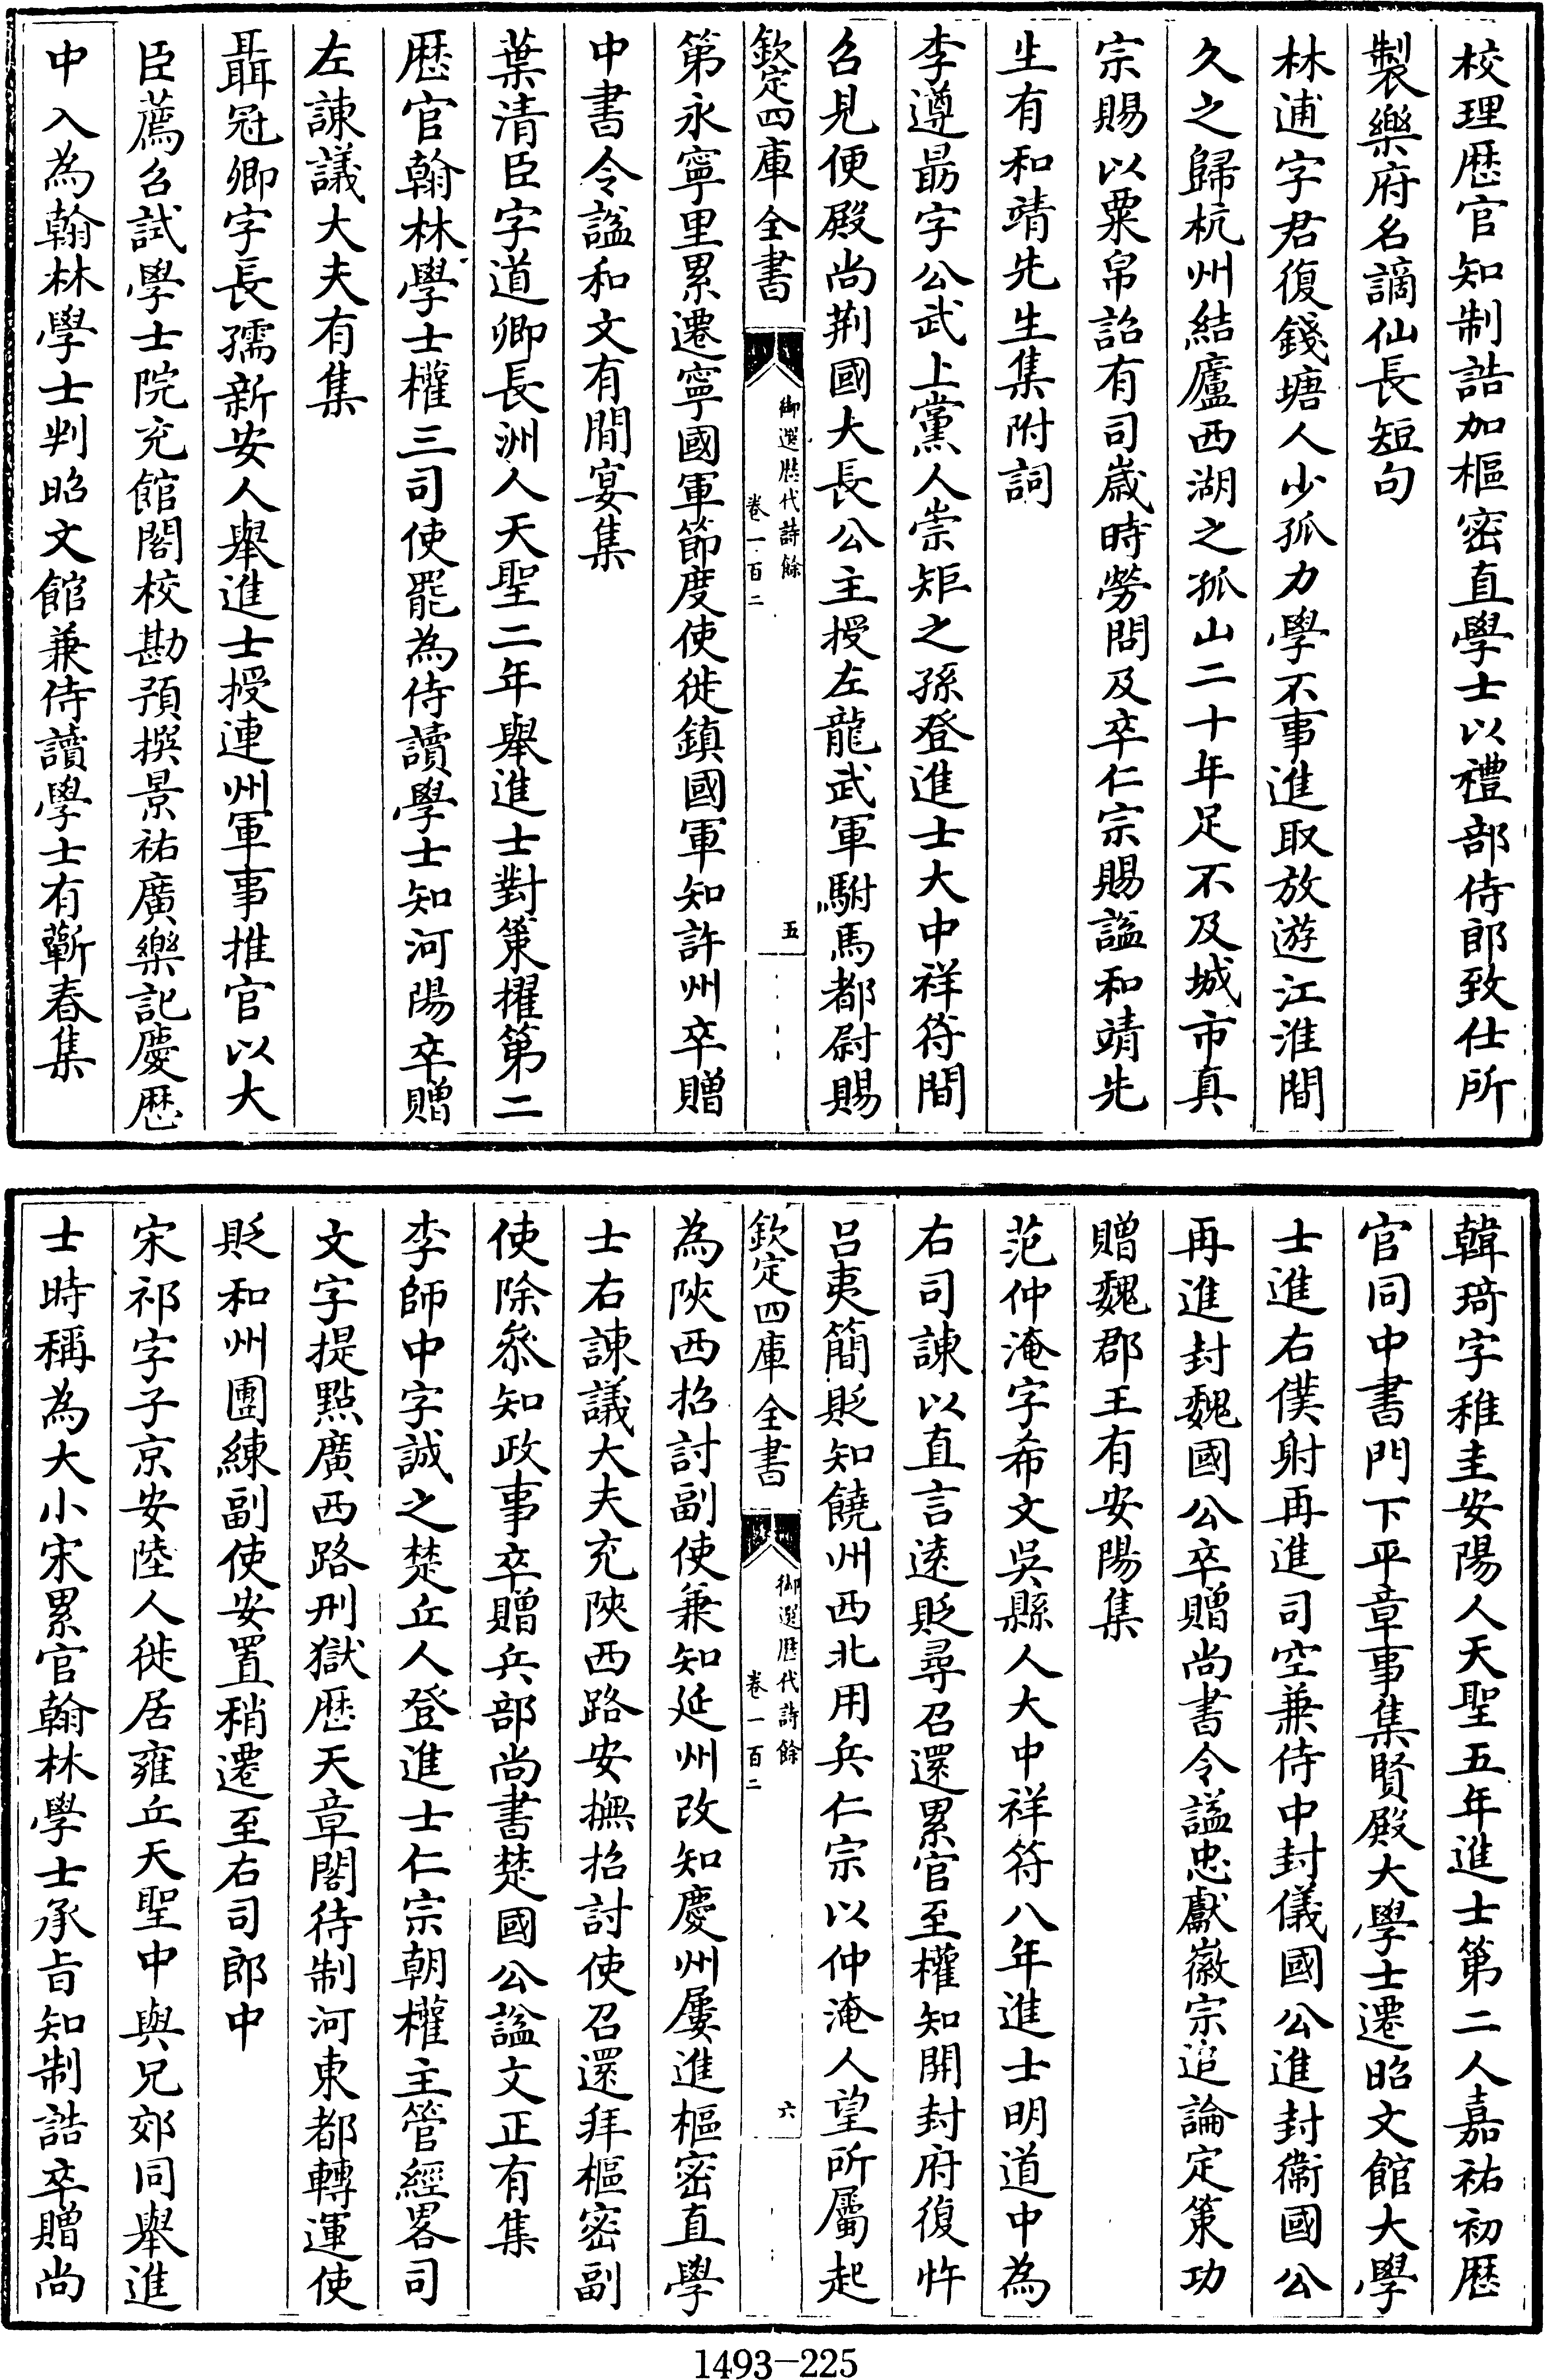 校理歴官知制誥加樞密直學士以禮部侍郎致仕所
製樂府名謫仙長短句
林逋字君復錢塘人少孤力學不事進取放遊江淮間
久之歸杭州結廬西湖之孤山二十年足不及城市真
宗賜以粟帛詔有司歳時勞問及卒仁宗賜謚和靖先
生有和靖先生集附詞
李遵勗字公武上黨人崇矩之孫登進士大中祥符間
召見便殿尚荆國大長公主授左龍武軍駙馬都尉賜
欽定四庫全書
御選歴代詩餘
卷一百二
五
第永寧里累遷寧國軍節度使徙鎮國軍知許州卒贈
中書令謚和文有閒宴集
葉清臣字道卿長洲人天聖二年舉進士對策擢第二
歴官翰林學士權三司使罷為侍讀學士知河陽卒贈
左諫議大夫有集
聶冠卿字長孺新安人舉進士授連州軍事推官以大
臣薦召試學士院充館閣校勘預撰景祐廣樂記慶歴
中入為翰林學士判昭文館兼侍讀學士有蘄春集
韓琦字稚圭安陽人天聖五年進士第二人嘉祐初歴
官同中書門下平章事集賢殿大學士遷昭文館大學
士進右僕射再進司空兼侍中封儀國公進封衞國公
再進封魏國公卒贈尚書令謚忠獻徽宗追論定策功
贈魏郡王有安陽集
范仲淹字希文吳縣人大中祥符八年進士明道中為
右司諫以直言逺貶尋召還累官至權知開封府復忤
呂夷簡貶知饒州西北用兵仁宗以仲淹人望所屬起
欽定四庫全書
御選歴代詩餘
卷一百二
六
為陜西招討副使兼知延州改知慶州屢進樞密直學
士右諫議大夫充陜西路安撫招討使召還拜樞密副
使除叅知政事卒贈兵部尚書楚國公謚文正有集
李師中字誠之楚丘人登進士仁宗朝權主管經畧司
文字提點廣西路刑獄歴天章閣待制河東都轉運使
貶和州團練副使安置稍遷至右司郎中
宋祁字子京安陸人徙居雍丘天聖中與兄郊同舉進
士時稱為大小宋累官翰林學士承旨知制誥卒贈尚
1493-225